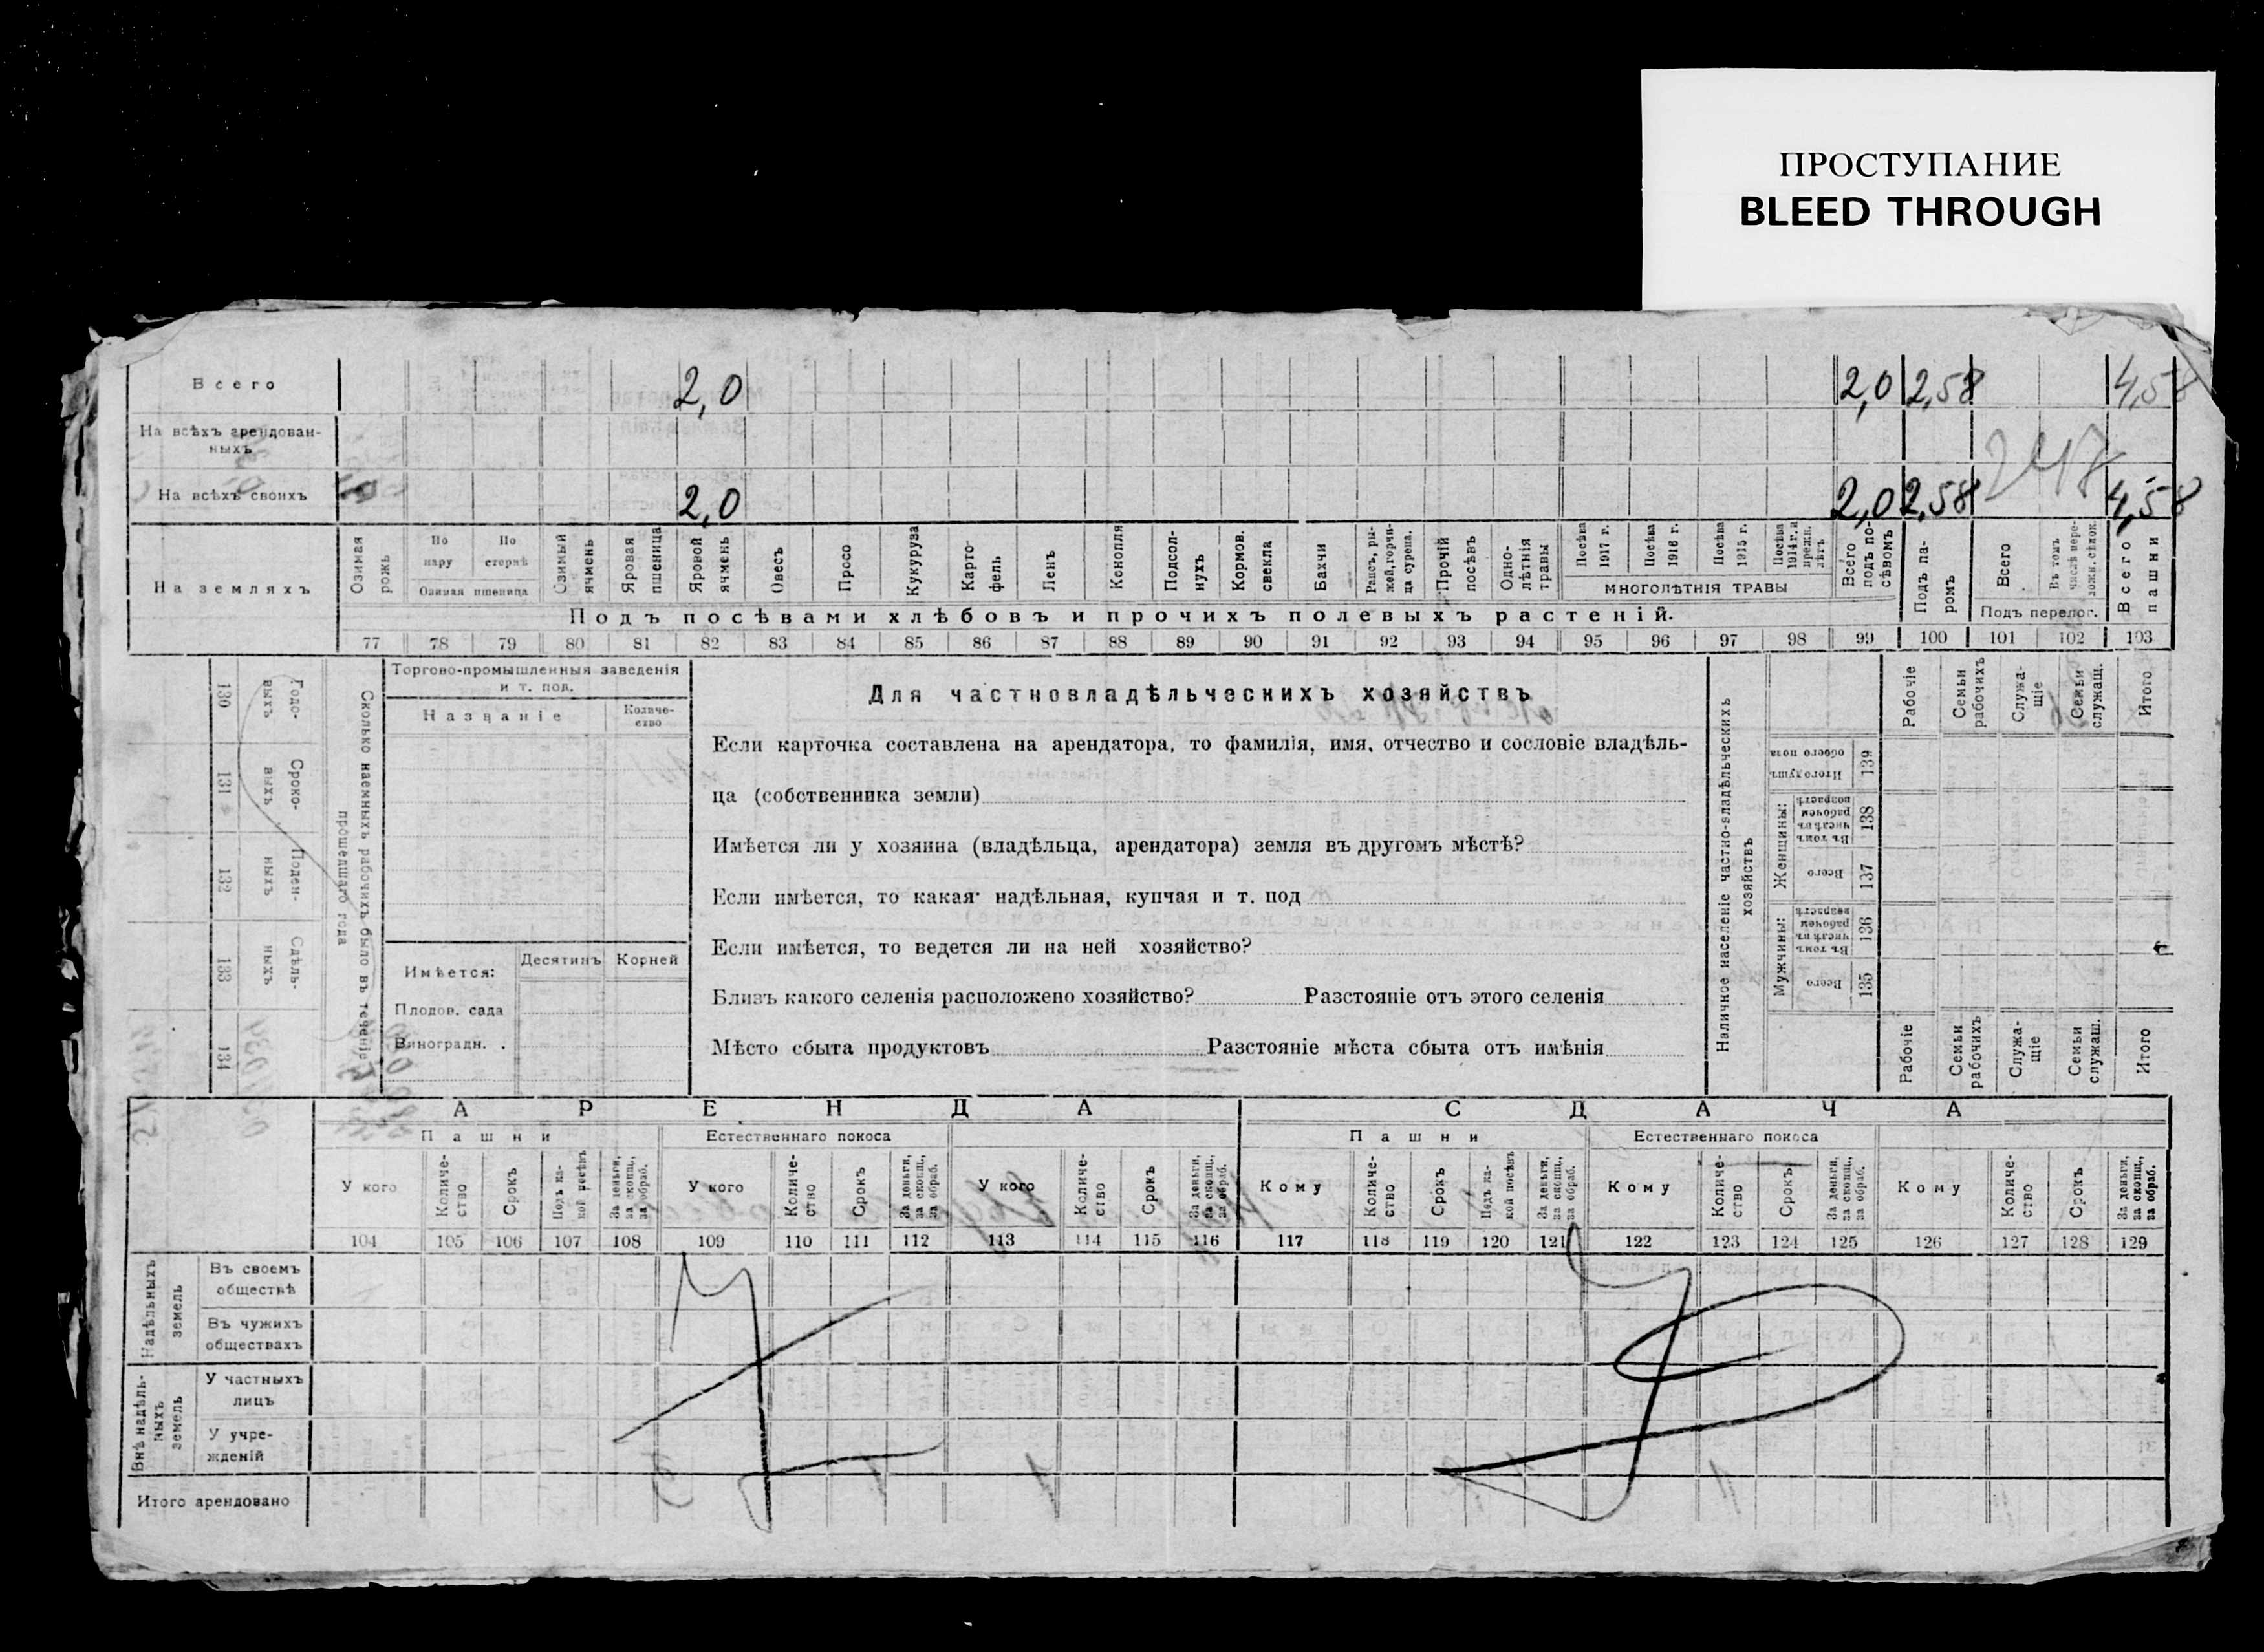 ПРОСТУПАНИЕ
BLEED THROUGH
Всего 2,0 2,0 2,58 4,58
На всѣхъ арендован-
ныхъ
247
На всѣхъ своихъ 2,0 2,0 2,58 4,58
На земляхъ
Озимая рожь
По пару
По стернѣ
Озимая пшеница
Озимый ячмень
Яровая пшеница
Яровой ячмень
Овесъ
Просо
Кукуруза
Карто-
фель
Ленъ
Конопля
Подсол-
нухъ
Кормов.
свекла
Бахчи
Рапсъ, ры-
жей, горчи-
ца сурепа.
Прочій посѣвъ
Одно-
лѣтнія
травы
Посѣва 1917 г.
Посѣва 1916 г.
Посѣва 1915 г.
Посѣва 1914 г. и прежн. лѣтъ
МНОГОЛѢТНІЯ ТРАВЫ
Всего
подъ по-
сѣвомъ
Подъ па-
ромъ
Всего
Въ томъ
числѣ пере-
ложн. сѣнок.
Подъ перелог.
Всего пашни
Подъ посѣвами хлѣбовъ и прочихъ полевыхъ растеній.
77 78 79 80 81 82 83 84 85 86 87 88 89 90 91 92 93 94 95 96 97 98 99 100 101 102 103
130 131 132 133 134
Годо-
выхъ
Сроко-
выхъ
Поден-
ныхъ
Сдѣль-
ныхъ
Сколько наемныхъ рабочихъ было въ теченіе
прошедшаго года
Торгово-промышленныя заведенія
и т. под.
Названіе
Количе-
ство
Имѣется:
Десятинъ Корней
Плодов. сада
Виноградн. .
Для частновладѣльческихъ хозяйствъ
Если карточка составлена на арендатора, то фамилія, имя, отчество и сословіе владѣль-
ца (собственника земли)
Имѣется ли у хозяина (владѣльца, арендатора) земля въ другомъ мѣстѣ?
Если имѣется, то какая: надѣльная, купчая и т. под
Если имѣется, то ведется ли на ней хозяйство?
Близъ какого селенія расположено хозяйство? Разстояніе отъ этого селенія
Мѣсто сбыта продуктовъ Разстояніе мѣста сбыта отъ имѣнія
Наличное населеніе частно-владѣльческихъ
хозяйствъ
Рабочіе
Семьи рабочихъ
Служа-
щіе
Семьи служащ.
Итого
Итого душъ
обоего пола
139
Женщины:
Въ томъ
числѣ въ
рабочемъ
возрастѣ
138
Всего
137
Мужчины:
Въ томъ
числѣ въ
рабочемъ
возрастѣ
136
Всего
135
Рабочіе
Семьи рабочихъ
Служа-
щіе
Семьи служащ.
Итого
АРЕНДА
СДАЧА
Пашни
Естественнаго покоса
Пашни
Естественнаго покоса
У кого
Количе-
ство
Срокъ
Подъ ка-
кой посѣвъ
За деньги,
за скопщ.,
за обраб.
У кого
Количе-
ство
Срокъ
За деньги,
за скопщ.,
за обраб.
У кого
Количе-
ство
Срокъ
За деньги,
за скопщ.,
за обраб.
Кому
Количе-
ство
Срокъ
Подъ ка-
кой посѣвъ
За деньги,
за скопщ.,
за обраб.
Кому
Количе-
ство
Срокъ
За деньги,
за скопщ.,
за обраб.
Кому
Количе-
ство
Срокъ
За деньги,
за скопщ.,
за обраб.
104 105 106 107 108 109 110 111 112 113 114 115 116 117 118 119 120 121 122 123 124 125 126 127 128 129
Надѣльныхъ
земель
Въ своемъ
обществѣ
Въ чужихъ
обществахъ
Внѣ надѣль-
ныхъ
земель
У частныхъ
лицъ
У учре-
жденій
Итого арендовано